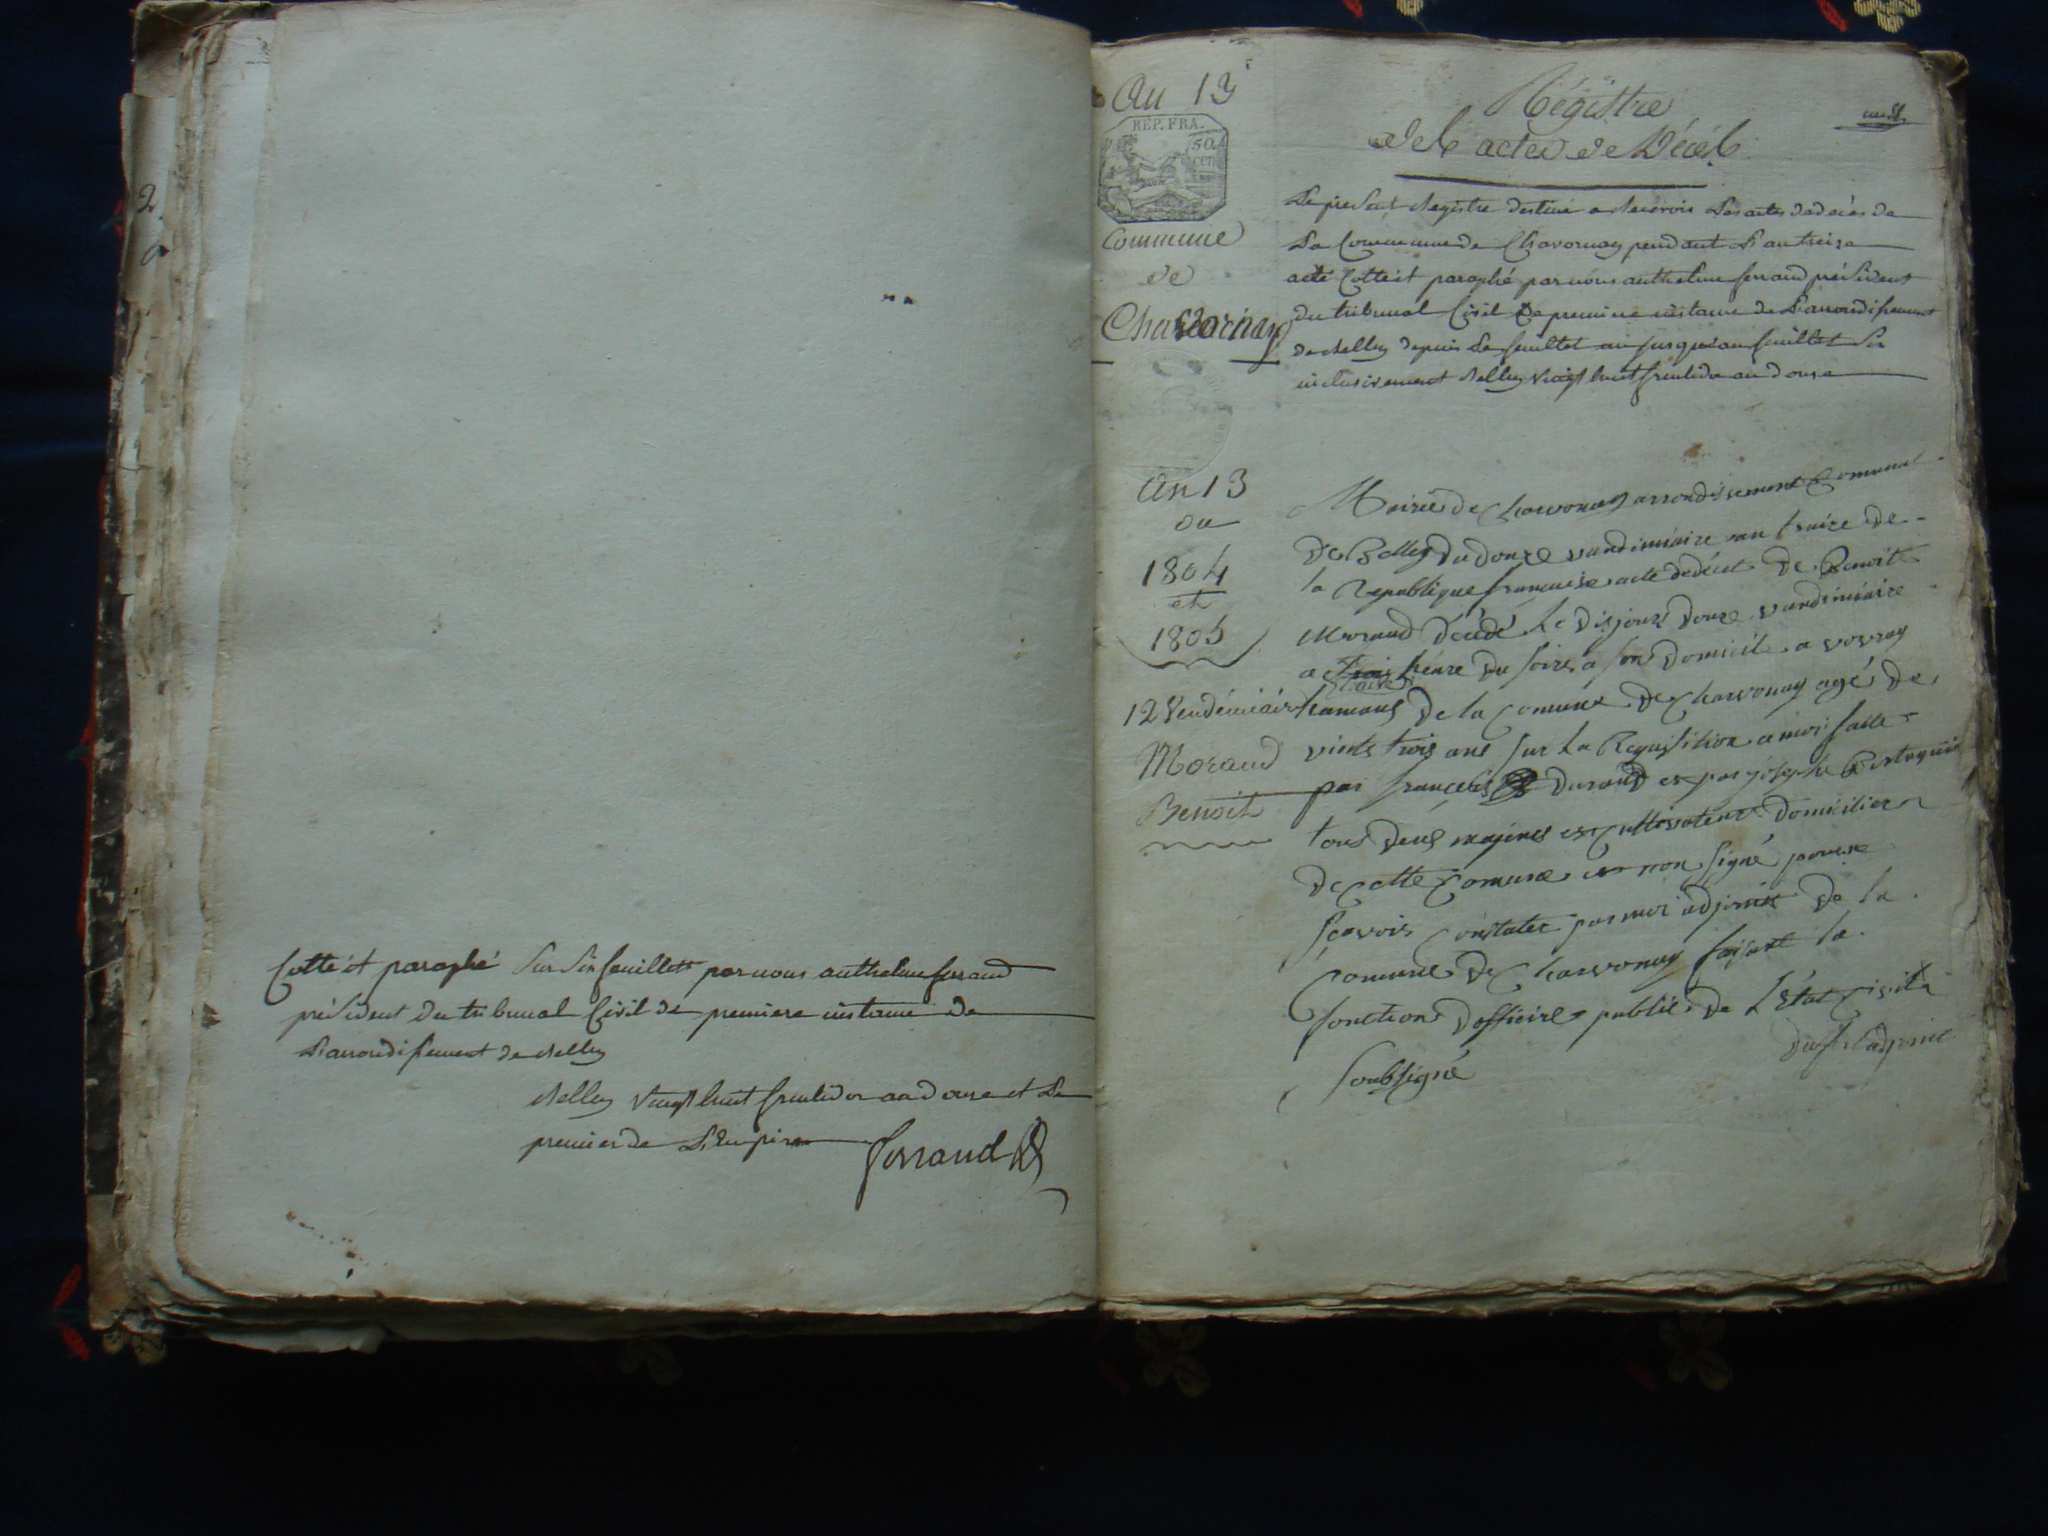 Cotté et paraphé Sur Six feuillets par nous anthelme ferrand
président du tribunal Civil de premiere instance de
L'arrondissement de Belley
Belley vingt huit fructidor an douze et Le
premier de L'Empire
ferrand
An 13
REP. FRA.
50
cen
Commune
de
Chavornay
Régistre
des actes de Décès
Le présent Registre destiné a Recevoir Les actes de décès de
La Commune de Chavornay pendant L'an treize
a été Cotté et paraphé par nous anthelme ferrand président
du tribunal Civil de premiere instance de L'arrondissement
de Belley depuis Le feuillet un jusques au feuillet Six
inclusivement Belley vingt huit fructidor an douze
An 13
ou
1804
et
1805
12 Vendémiaire
Morand
Benoit
Mairie de Charvonay arrondissement Comunal
de Belley du douze vandimiaire an traize de
la Republique francaise acte de décés de Benoit
Morand décédé le dis jours douze vandimiaire
a heure du soire a son domicile a vovray
hamaus de la Comune de Charvonay agé de
vints trois ans sur la Requisition a moi faite
par francois Durand et par joseph
tous deus majeurs et Cultivateur domicilier
de Cette Comune et non signé pour ne
scavoir Constater par moi adjoint de la
Comune de Charvonay faisant la
fonction dofficire public de L'Etat Civil
soubsigné
L'adjoint